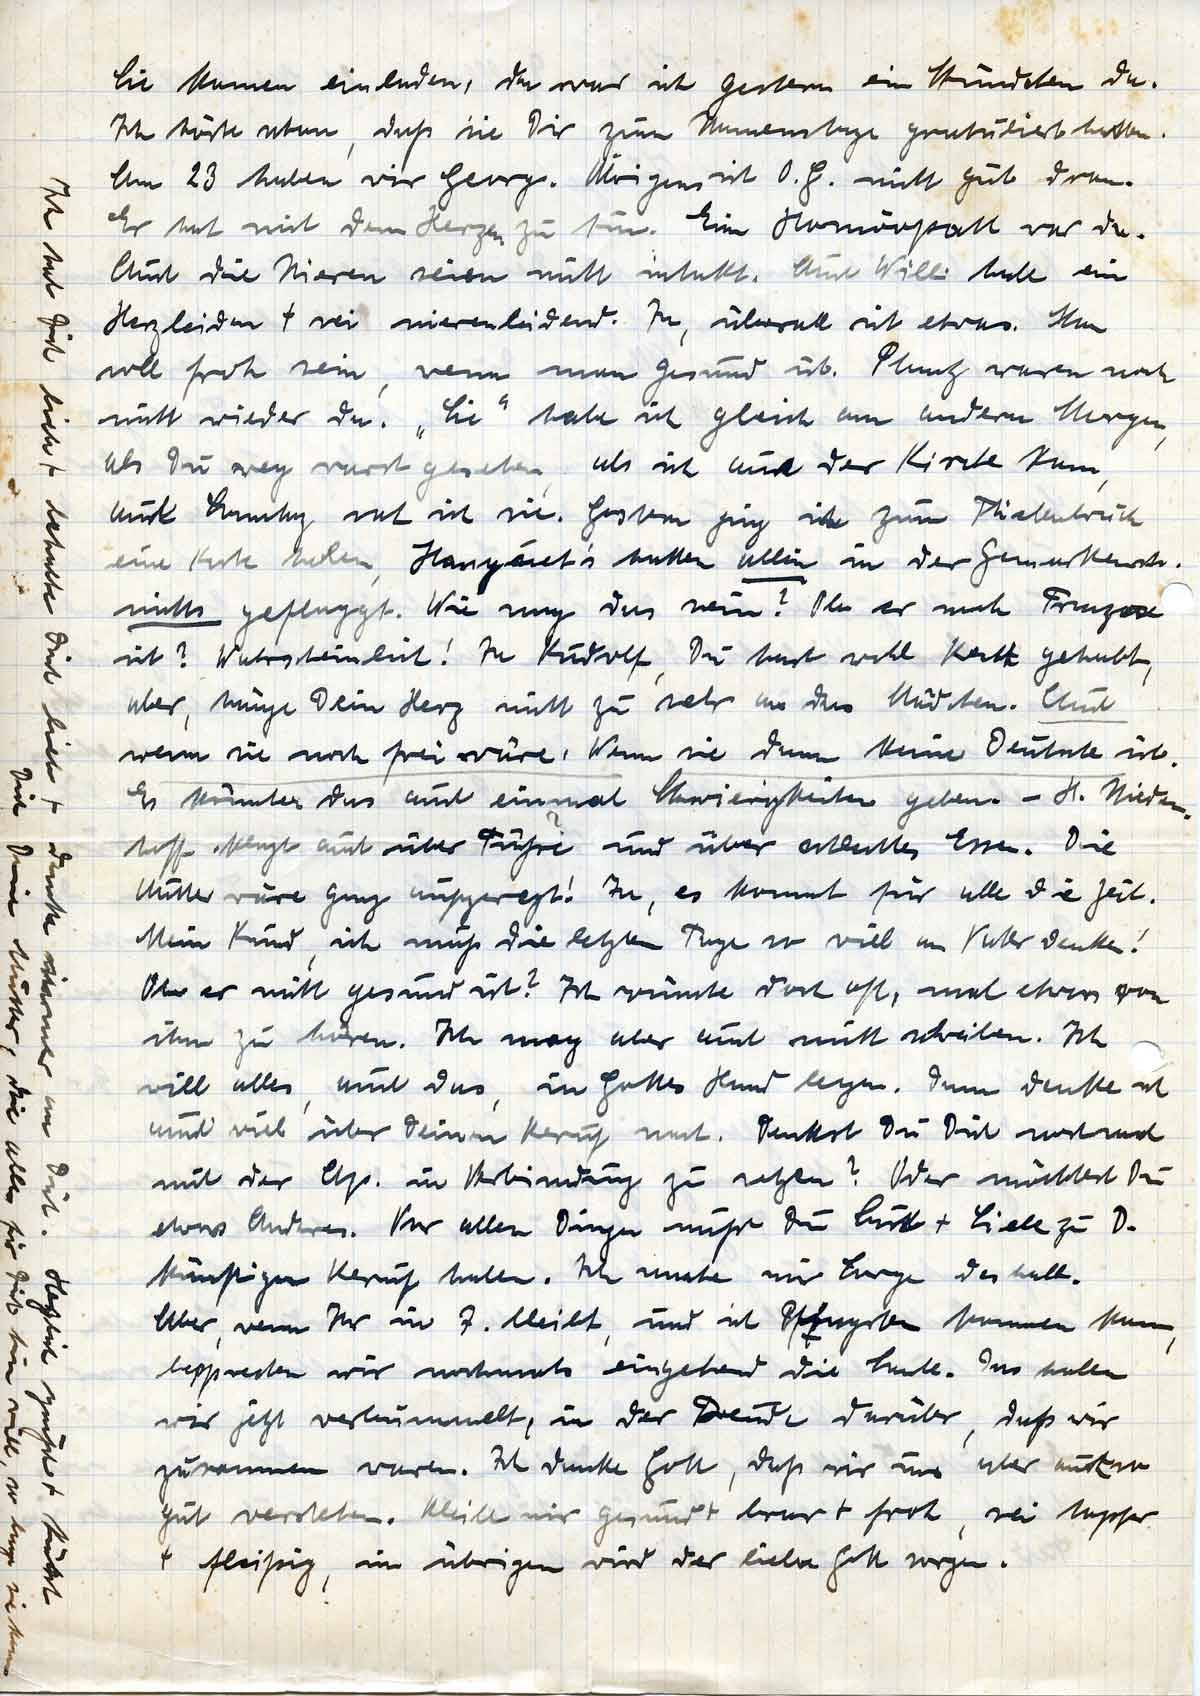 Sie kamen einladen, da war ich gestern ein Stündchen da.
Ich hörte eben, daß sie Dir zum Namenstage gratuliert hatten.
Am 23 haben wir Georg. Übrigens ist O.G. nicht gut dran.
Er hat mit dem Herzen zu tun. Ein Homöopath war da.
Auch die Nieren seien nicht intakt. Auch Willi habe ein
Herzleiden + sei nierenleidend. Ja, überall ist etwas. Man
soll froh sein, wenn man gesund ist. waren noch
nicht wieder da. „Sie" habe ich gleich am andern Morgen,
als Du weg warst gesehen, als ich aus der Kirche kam,
auch Sonntag sah ich sie. Gestern ging ich zum
eine Karte holen, hatten allein in der
nichts geflaggt. Wie mag das sein? Ob er noch Franzose
ist? Wahrscheinlich! Ja Rudolf, Du hast wohl Recht gehabt,
aber, hänge Dein Herz nicht zu sehr an das Mädchen. Auch
wenn sie noch frei wäre, wenn sie dann keine Deutsche ist.
Es könnte das auch einmal Schwierigkeiten geben. – H. Nieder-
hoff klagt auch über und über schlechtes Essen. Die
Mutter wäre ganz aufgeregt! Ja, es kommt für alle die Zeit.
Mein Kind, ich muß die letzten Tage so viel an Vater denken!
Ob er nicht gesund ist? Ich wünsche doch oft, mal etwas von
ihm zu hören. Ich mag aber auch nicht schreiben. Ich
will alles, auch das, in Gottes Hand legen. Dann denke ich
auch viel über Deinen Beruf nach. Denkst Du Dich nochmal
mit der in Verbindung zu setzen? Oder möchtest Du
etwas Anderes. Vor allen Dingen mußt Du Lust + Liebe zu D.
künftigen Beruf haben. Ich mache mir Sorge deshalb.
Aber, wenn Ihr in F. bleibt, und ich Pfingsten kommen kann,
besprechen wir nochmals eingehend die Sache. Das haben
wir jetzt verbummelt, in der Freude darüber, daß wir
zusammen waren. Ich danke Gott, daß wir uns aber auch so
gut verstehen. Bleibe mir gesund + brav + froh, sei tapfer
+ fleißig, im übrigen wird der liebe Gott sorgen.
Ich hab Dich lieb + behalte Dich lieb + denke immer an Dich. Herzlich grüßt + küßt
Dich Deine Mutter, die alles für Dich tun will, so lange sie kann.